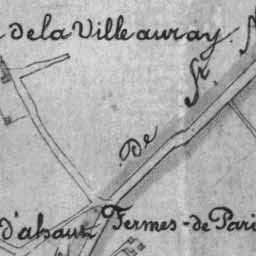 de la Ville auray.
De St. A
d'ahaut Fermes-de Pari